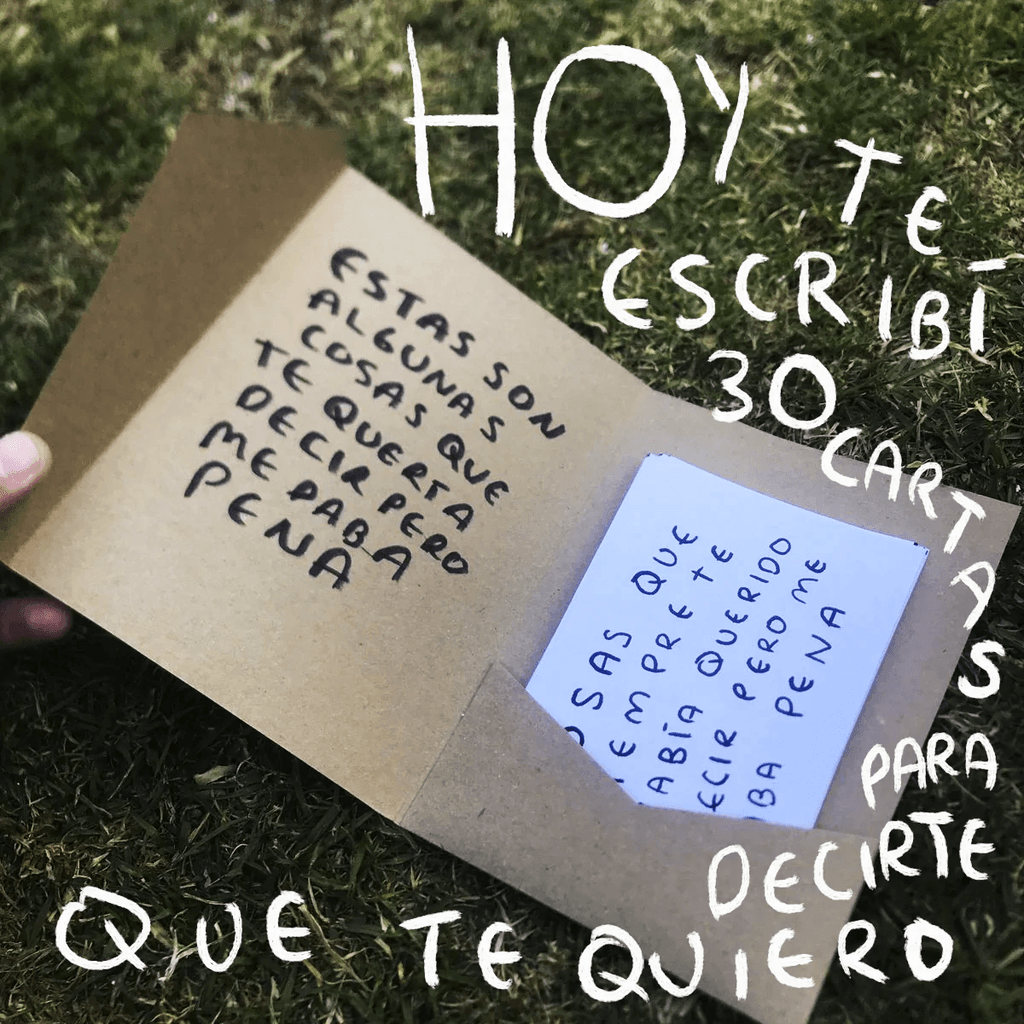 HOY
TE
ESCRIBÍ
30
CARTAS
PARA
DECIRTE
QUE TE QUIERO
ESTAS SON
ALGUNAS
COSAS QUE
TE QUERTA
DECIR PERO
ME PABA
PENA
OSAS QUE
IEMPRE TE
ABÍA QUERIDO
ECIR PERO ME
BA PENA